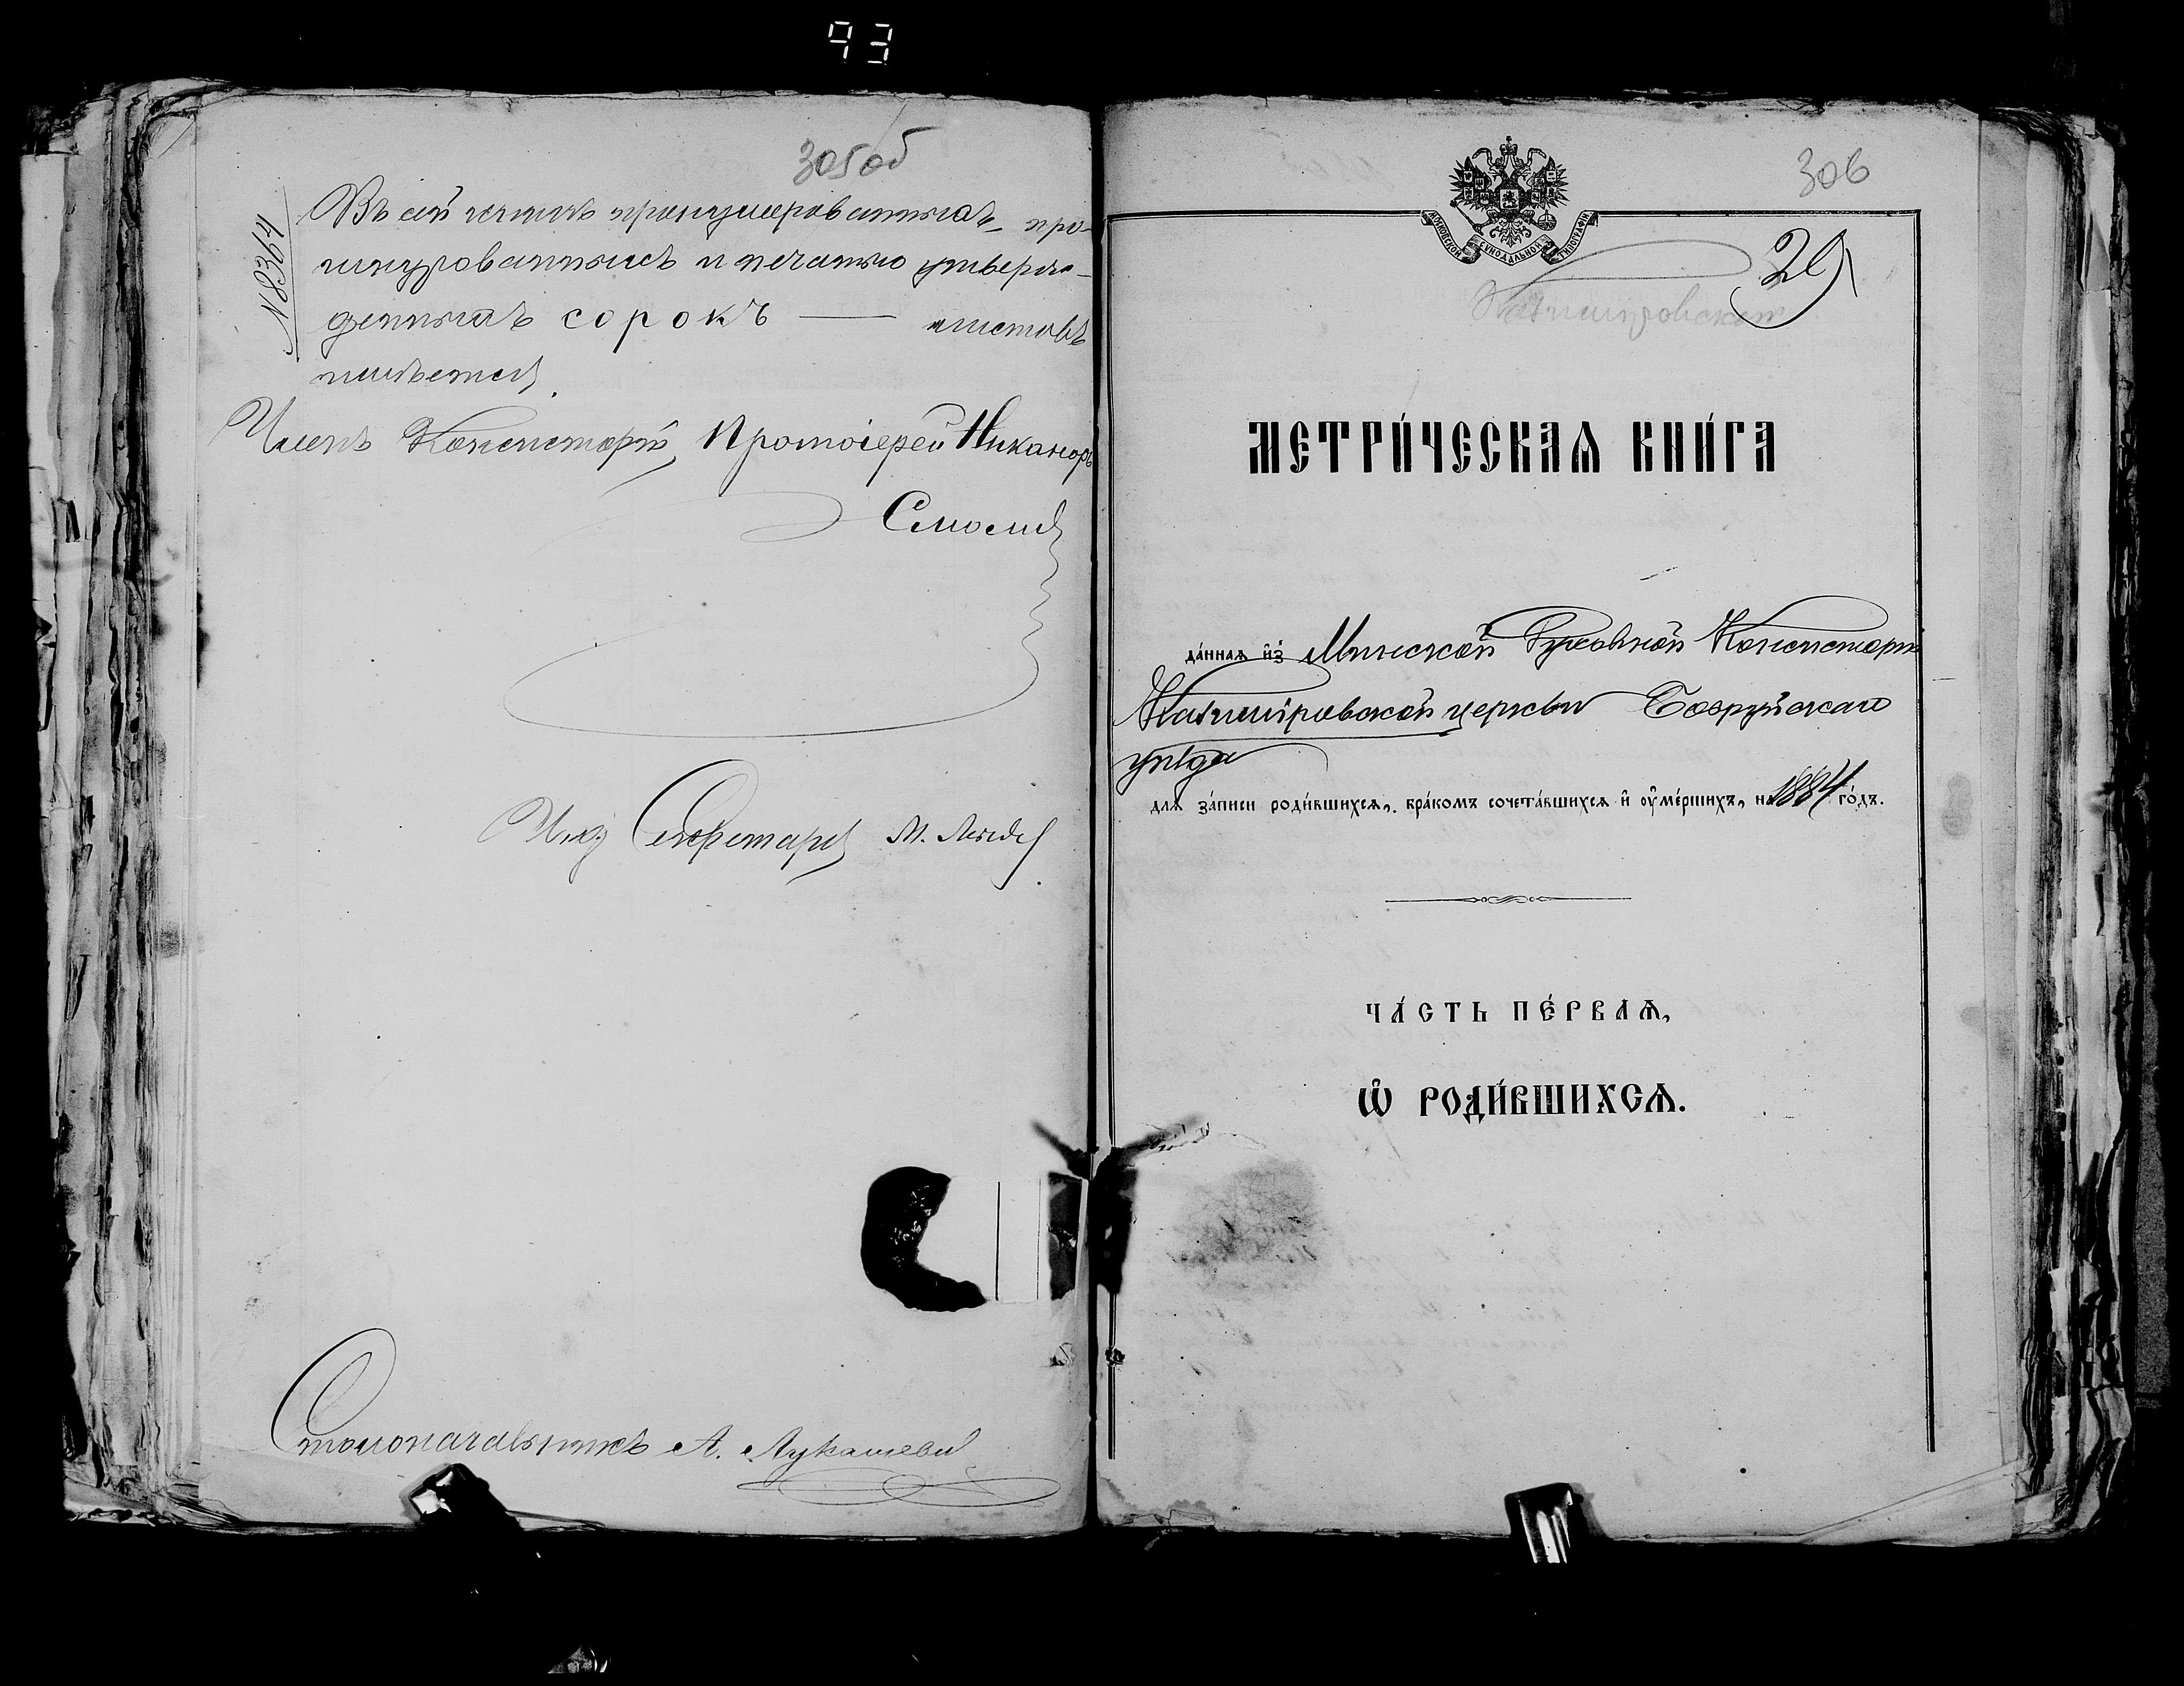 93
305об
№ 8364
Въ сей книгѣ пронумерованныхъ, про-
шнурованныхъ и печатью утверж-
денныхъ сорокъ — листовъ
имѣется.
Членъ Консисторіи, Протоіерей Никаноръ
Смоличъ
Секретарь М.
Столоначальникъ А. Лукашевичъ
306
МОСКОВСКОЙ СѴНОДАЛЬНОЙ ТИПОГРАФІИ
29
Казимировская
МЕТРИ́ЧЕСКАѦ КНИ́ГА
да́ннаѧ и҆з̾ Минской Духовной Консисторіи
Казиміровской церкви Бобруйскаго
уѣзда
длѧ за́писи роди́вшихсѧ, бра́комъ сочета́вшихсѧ и҆ оу҆ме́ршихъ, на 1884 го́дъ.
ЧА́СТЬ ПЕ́РВАѦ,
Ѽ РОДИ́ВШИХСѦ.